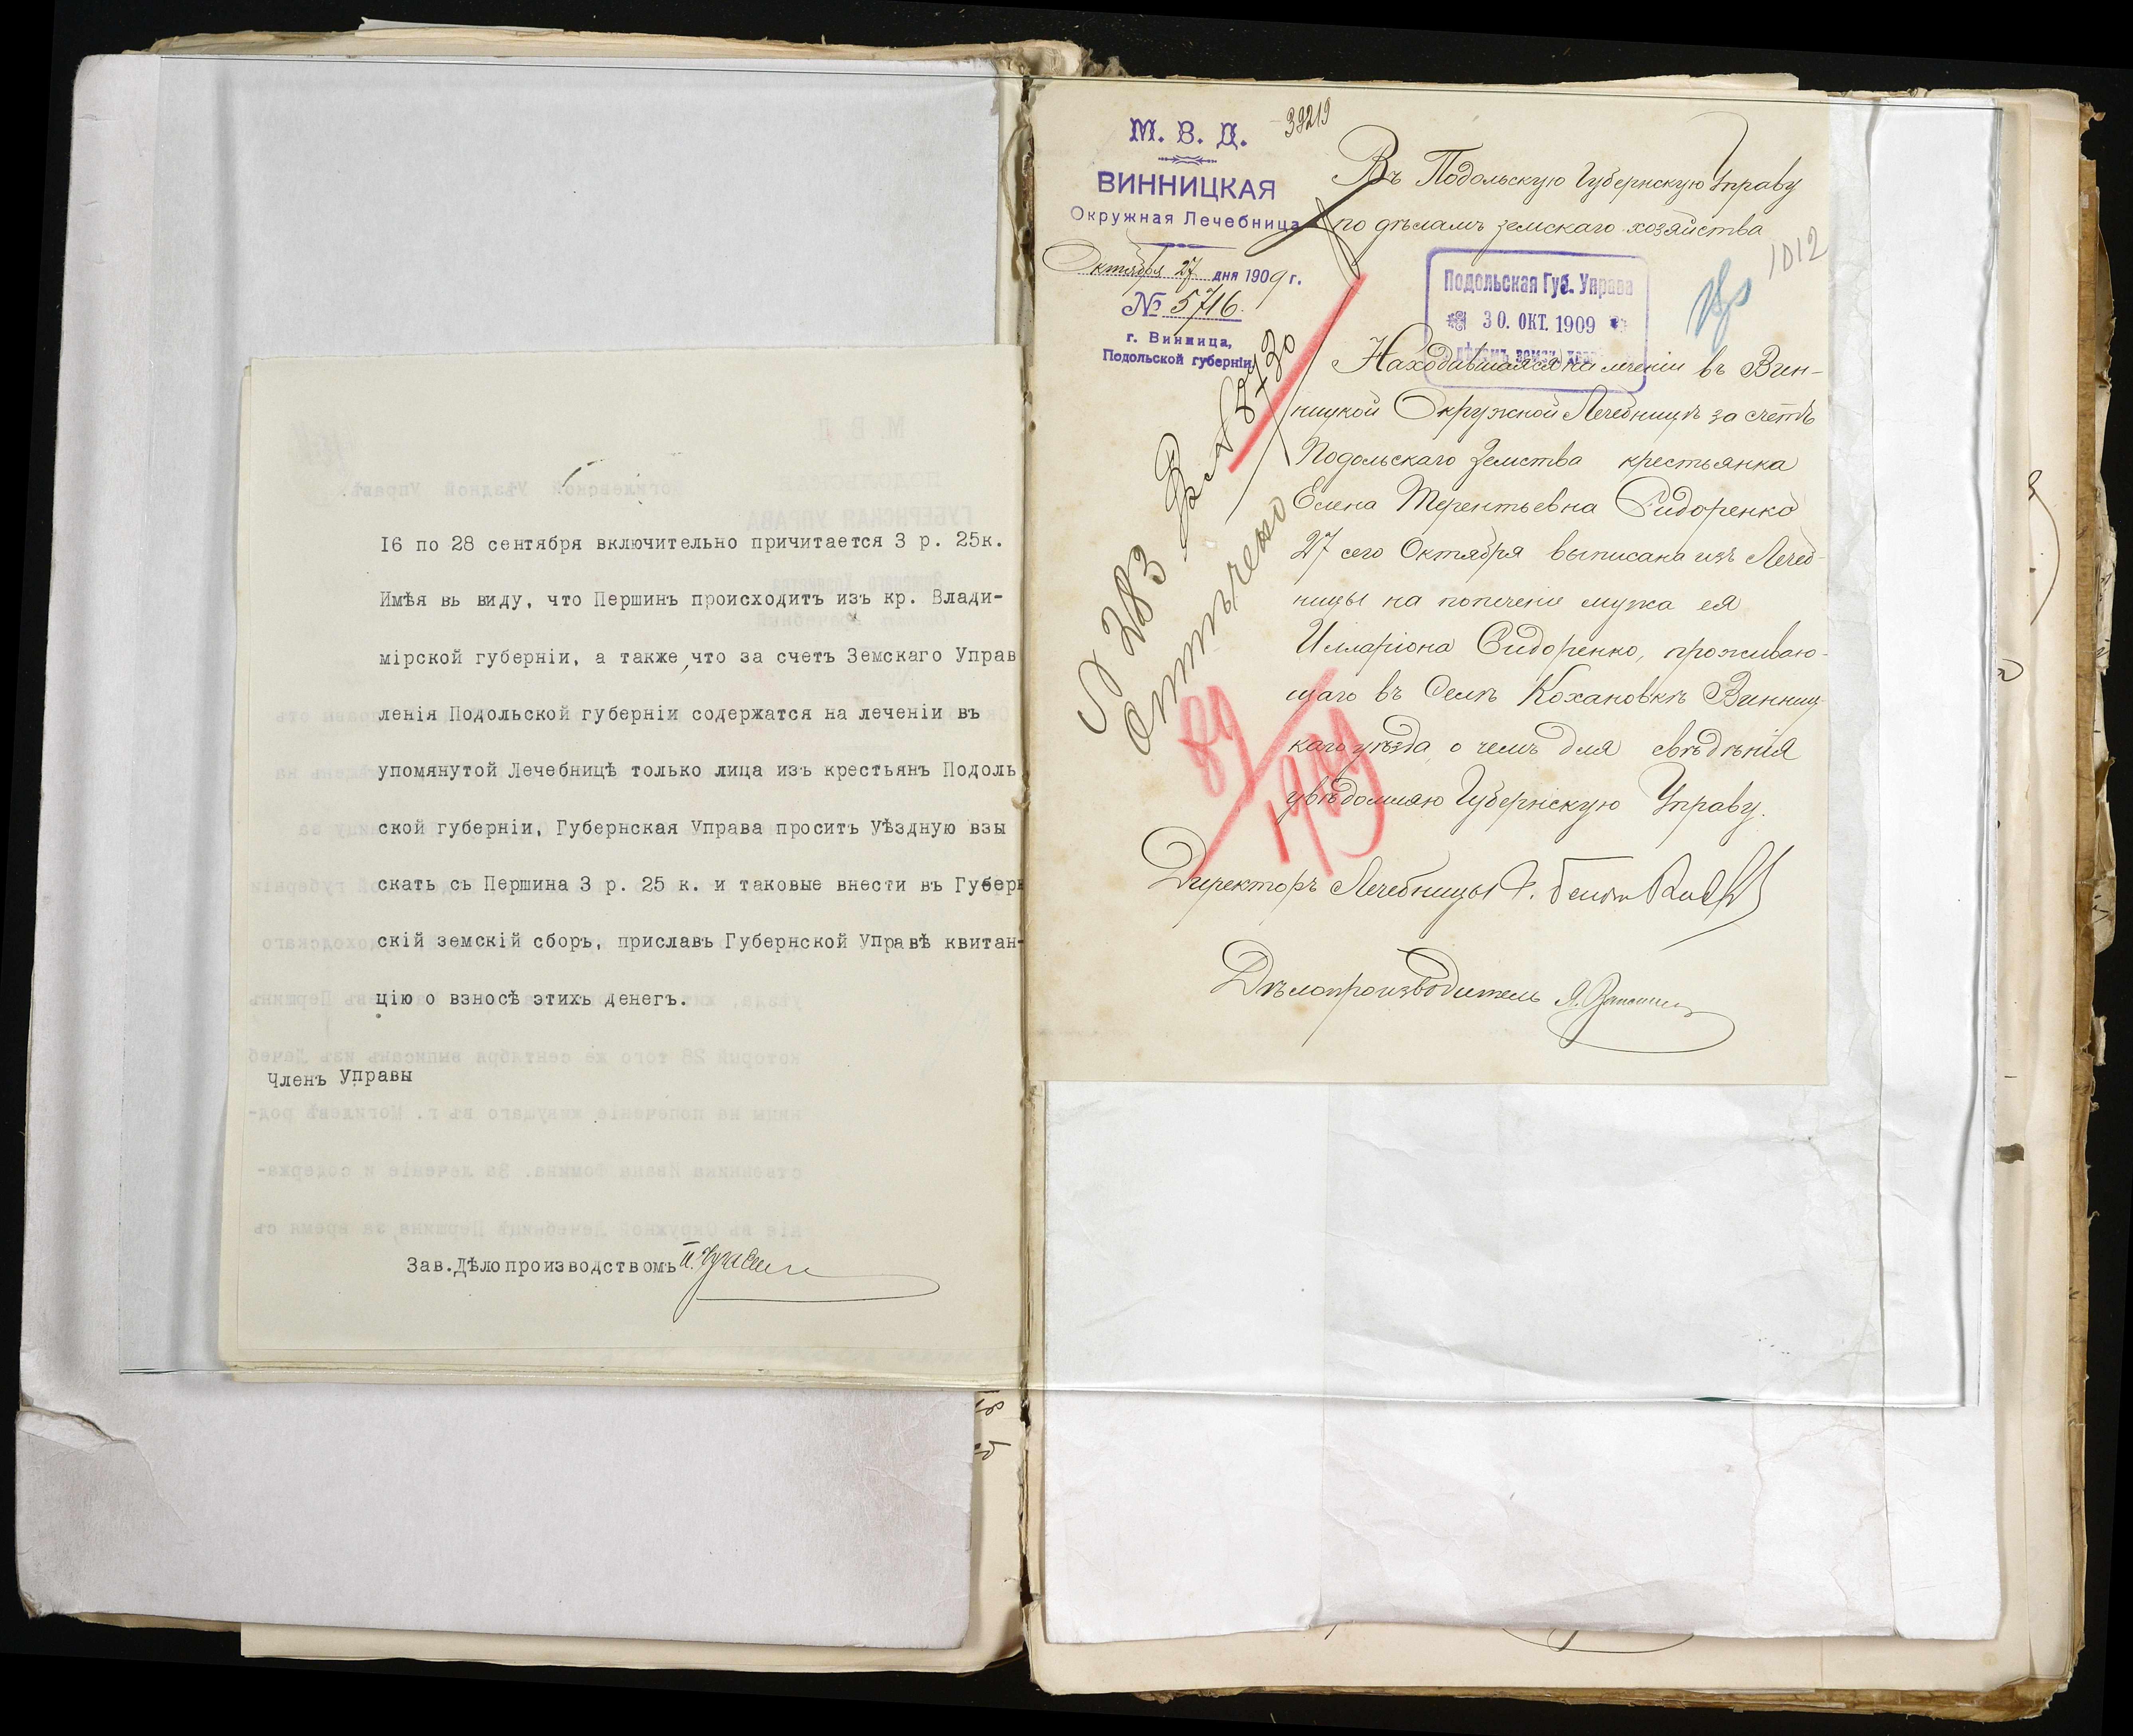 16 по 28 сентября включительно причитается 3 р. 25к.
Имѣя въ виду, что Першинъ происходитъ изъ кр. Влади-
мірской губерніи, а также,что за счетъ Земскаго Управ
ленія Подольской губерніи содержатся на леченіи въ
упомянутой Лечебницѣ только лица изъ крестьянъ Подоль
ской губерніи, Губернская Управа проситъ Уѣздную взы
скать съ Першина 3 р. 25 к. и таковые внести въ Губерн
скій земскій сборъ, приславъ Губернской Управѣ квитан-
цію о взносѣ этихъ денегъ.
Членъ Управы
Зав.Дѣлопроизводствомъ
М. В. Д.
ВИННИЦКАЯ
Окружная Лечебница
Октября 27 дня 1909 г.
№ 5716.
г. Винница,
Подольской губерніи
Въ Подольскую Губернскую Управу
по дѣламъ земскаго хозяйства
1012
Подольская Губ. Управа
30. ОКТ. 1909
Находившаяся на леченіи въ Вин-
ницкой Окружной Лечебницѣ за счетъ
Подольскаго Земства крестьянка
Елена Терентьевна Сидоренко
27 сего Октября выписана изъ Лечеб-
ницы на попеченіе мужа ея
Илларіона Сидоренко, проживаю-
щаго въ Селѣ Кохановкѣ Винниц-
каго уѣзда, о чемъ для свѣдѣнія
увѣдомляю Губернскую Управу.
Директоръ Лечебницы
Дѣлопроизводитель
283
отмѣчено
89
1909